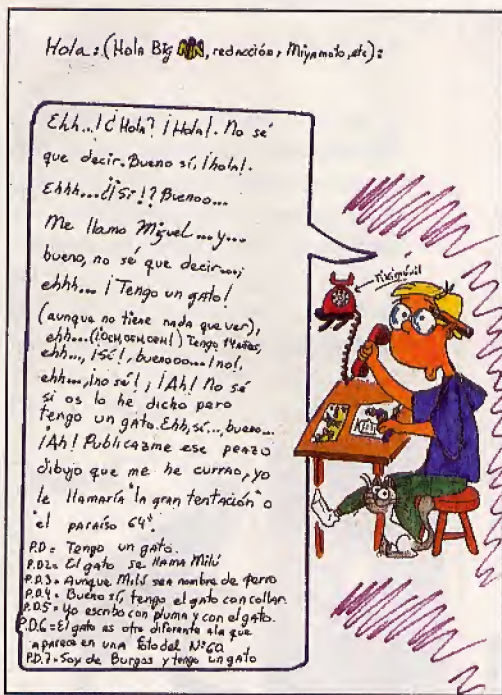 Hola:(Hola Big N, redacción, Miyamoto, etc):
Ehh...! ¿Hola? ¡Hola!. No sé
que decir. Bueno sí, ¡hola!.
Ehhh...¿¡Sí!? Buenoo...
Me llamo Miguel...y...
bueno, no sé que decir...;
ehhh... ¡Tengo un gato!
(aunque no tiene nada que ver),
ehh...(¡OCH, OCH, OCH!) Tengo 14 años,
ehh..., ¡Sí!, buenooo...¡no!,
ehh...,¡no sé!; ¡Ah! No sé
si os lo he dicho pero
tengo un gato. Ehh, sí..., bueno...
¡Ah! Publicazme ese peazo
dibujo que me he currao, yo
le llamaría "la gran tentación" o
"el paraíso 64".
P.D= Tengo un gato.
P.D2= El gato se llama Milú
P.D.3= Aunque Milú sea nombre de perro
P.D.4= Bueno sí, tengo el gato con collar.
P.D.5= Yo escribo con pluma y con el gato.
P.D.6= El gato es otro diferente a la que
aparece en una foto del Nº60
P.D.7= Soy de Burgos y tengo un gato
rikimóvil